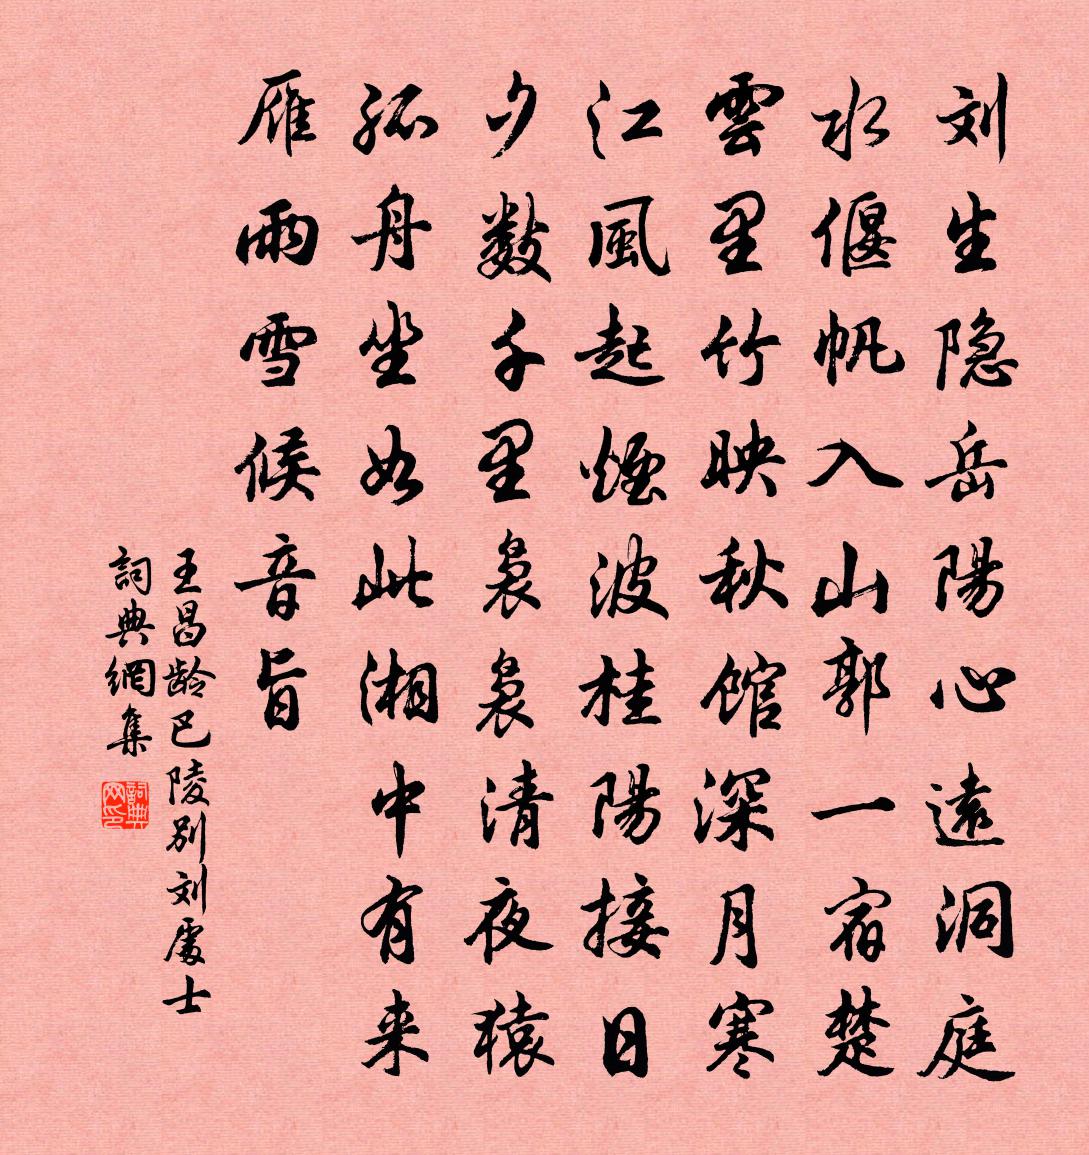 刘生隐岳陽心遠洞庭
水偃帆入山郭一宿楚
雲里竹映秋馆深月寒
江風起煙波桂陽接日
夕数千里袅袅清夜猿
孤舟坐如此湘中有来
雁雨雪候音旨
王昌龄巴陵别刘處士
詞典網集
詞典网印